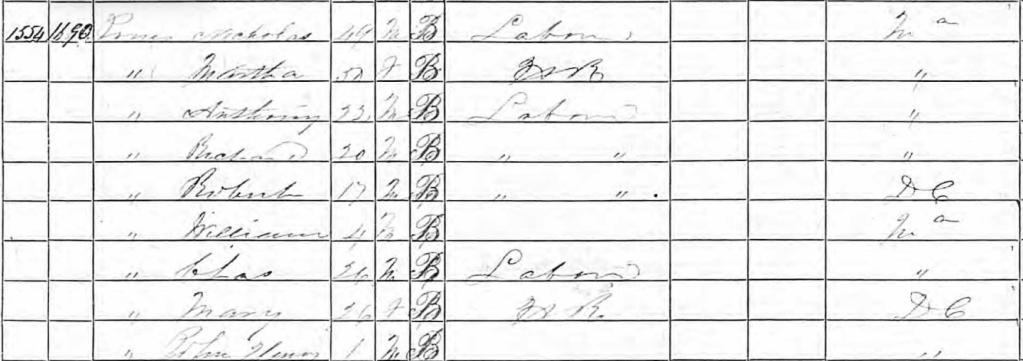 1554 1690 Jones Nicholas 49 M B Labour Va
" Martha 50 F B H K "
" Anthony 22 M B Labour "
" Richard 20 M B " " "
" Robert 17 M B " " . D C
" William 4 M B Va
" Chas 26 M B Labour "
" Mary 26 F B H K. D C
" John 1 M B "